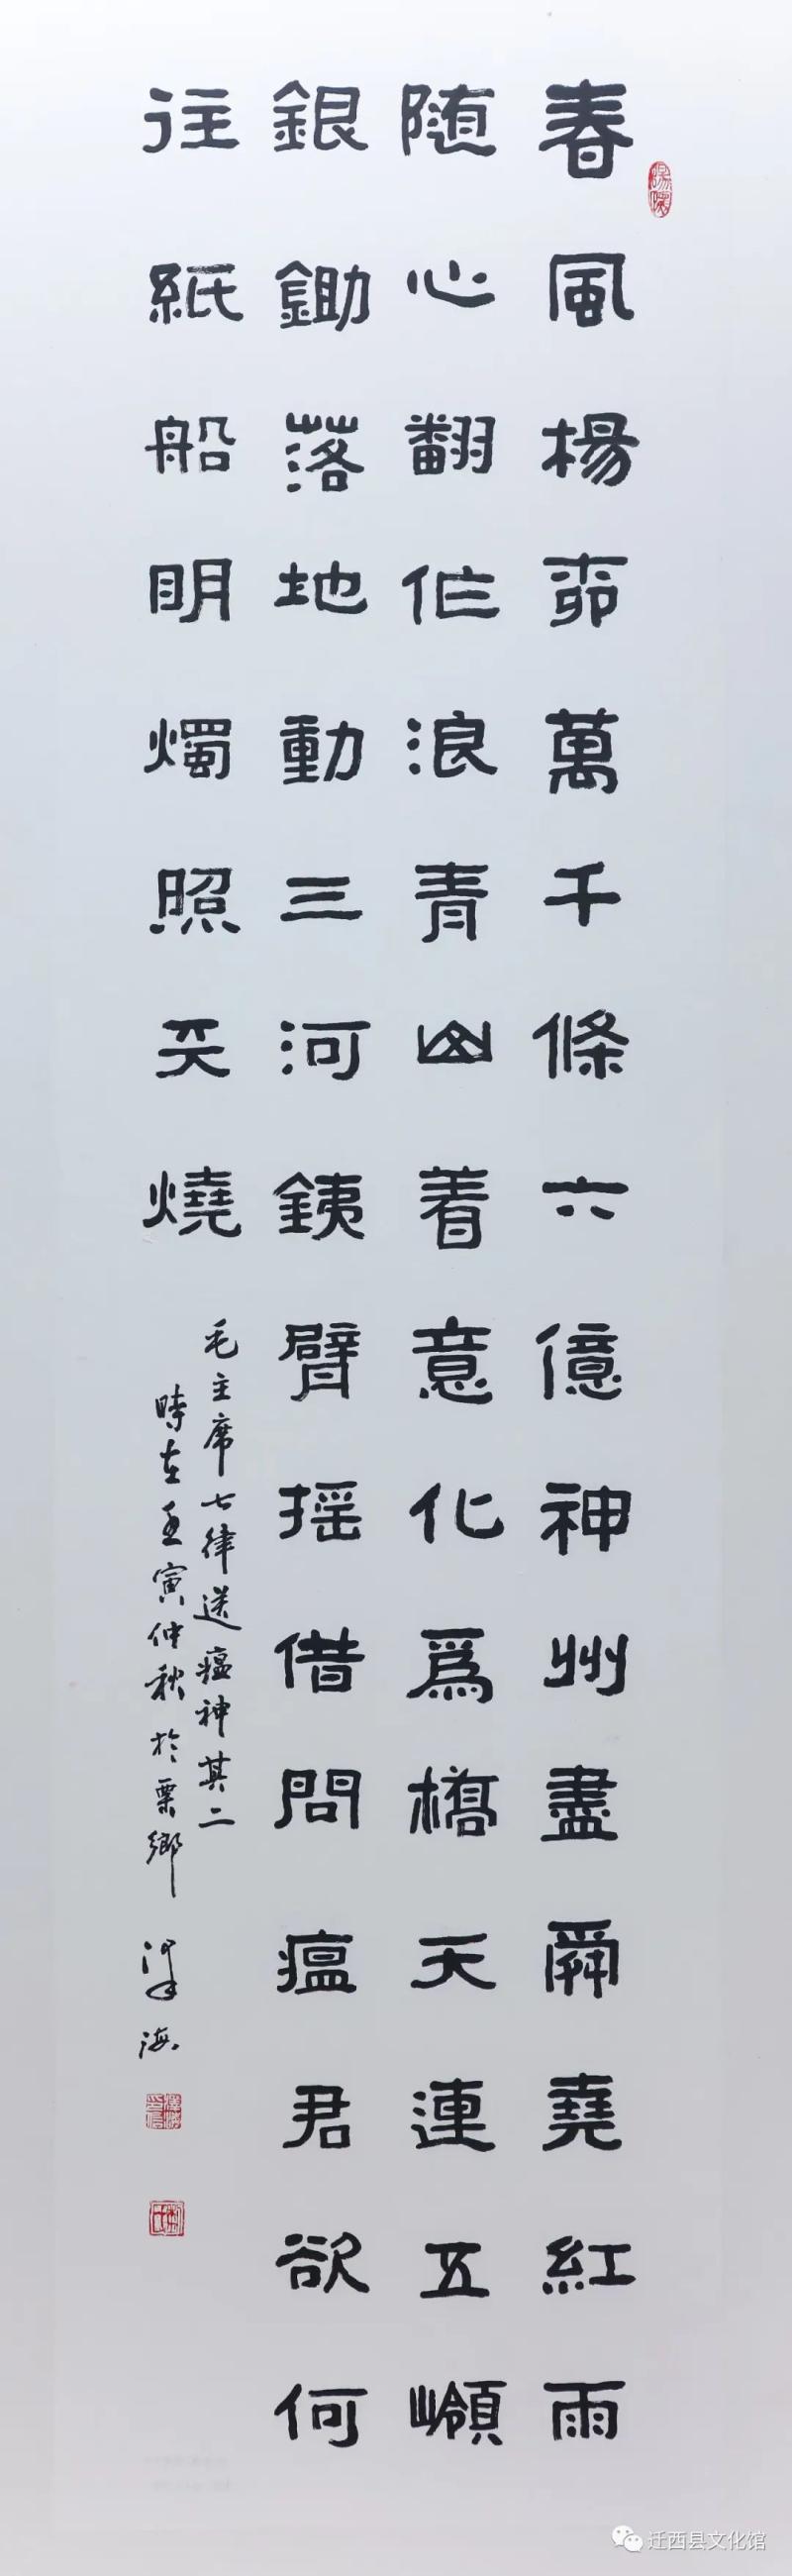 春風楊柳萬千條六億神州盡舜堯紅雨
随心翻作浪青山着意化爲橋天連五嶺
銀鋤落地動三河銕臂摇借問瘟君欲何
往紙船明燭照天燒
毛主席七律送瘟神其二
時在壬寅仲秋於栗鄉 澤海
迁西县文化馆